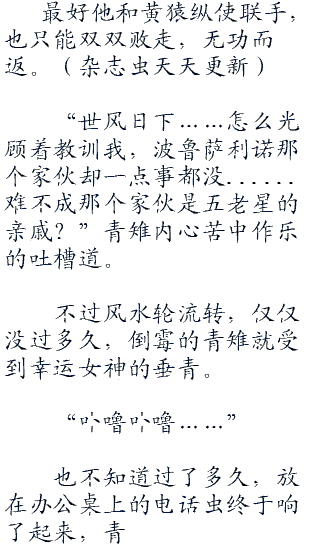 最好他和黄猿纵使联手，
也只能双双败走，无功而
返。（杂志虫天天更新）
“世风日下……怎么光
顾着教训我，波鲁萨利诺那
个家伙却一点事都没......
难不成那个家伙是五老星的
亲戚？”青雉内心苦中作乐
的吐槽道。
不过风水轮流转，仅仅
没过多久，倒霉的青雉就受
到幸运女神的垂青。
“卟噜卟噜……”
也不知道过了多久，放
在办公桌上的电话虫终于响
了起来，青